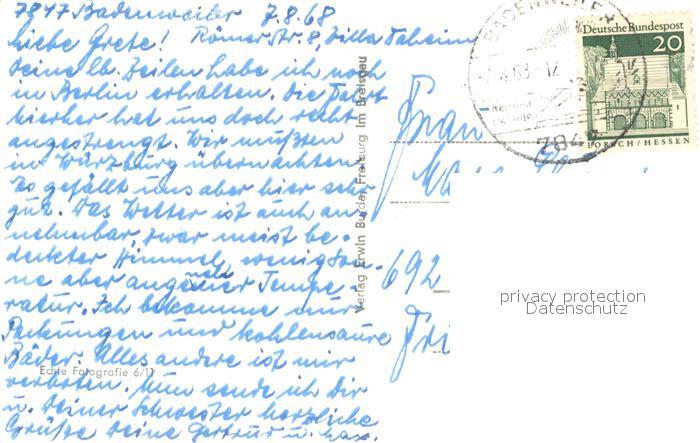 7847 Badenweiler 7.8.68
Römerstr. 8, Villa Daheim
Liebe Grete!
Deine lb. Zeilen habe ich noch
in Berlin erhalten. Die Fahrt
hierher hat uns doch recht
angestrengt. Wir mußten
in Würzburg übernachten.
Es gefällt uns aber hier sehr
gut. Das Wetter ist auch an-
nehmbar, zwar meist be-
deckter Himmel, wenig Son-
ne aber angenehme Tempe-
ratur. Ich bekomme nur
Packungen und kohlensaure
Bäder. Alles andere ist mir
verboten. Nun sende ich Dir
u. Deiner Schwester herzliche
Grüße Deine Gertrud u. Max.
Echte Fotografie 6/11
Verlag Erwin Burda, Freiburg im Breisgau
Frau
692
Fri
BADENWEILER
7847
Deutsche Bundespost
20
LORSCH/HESSEN
privacy protection
Datenschutz